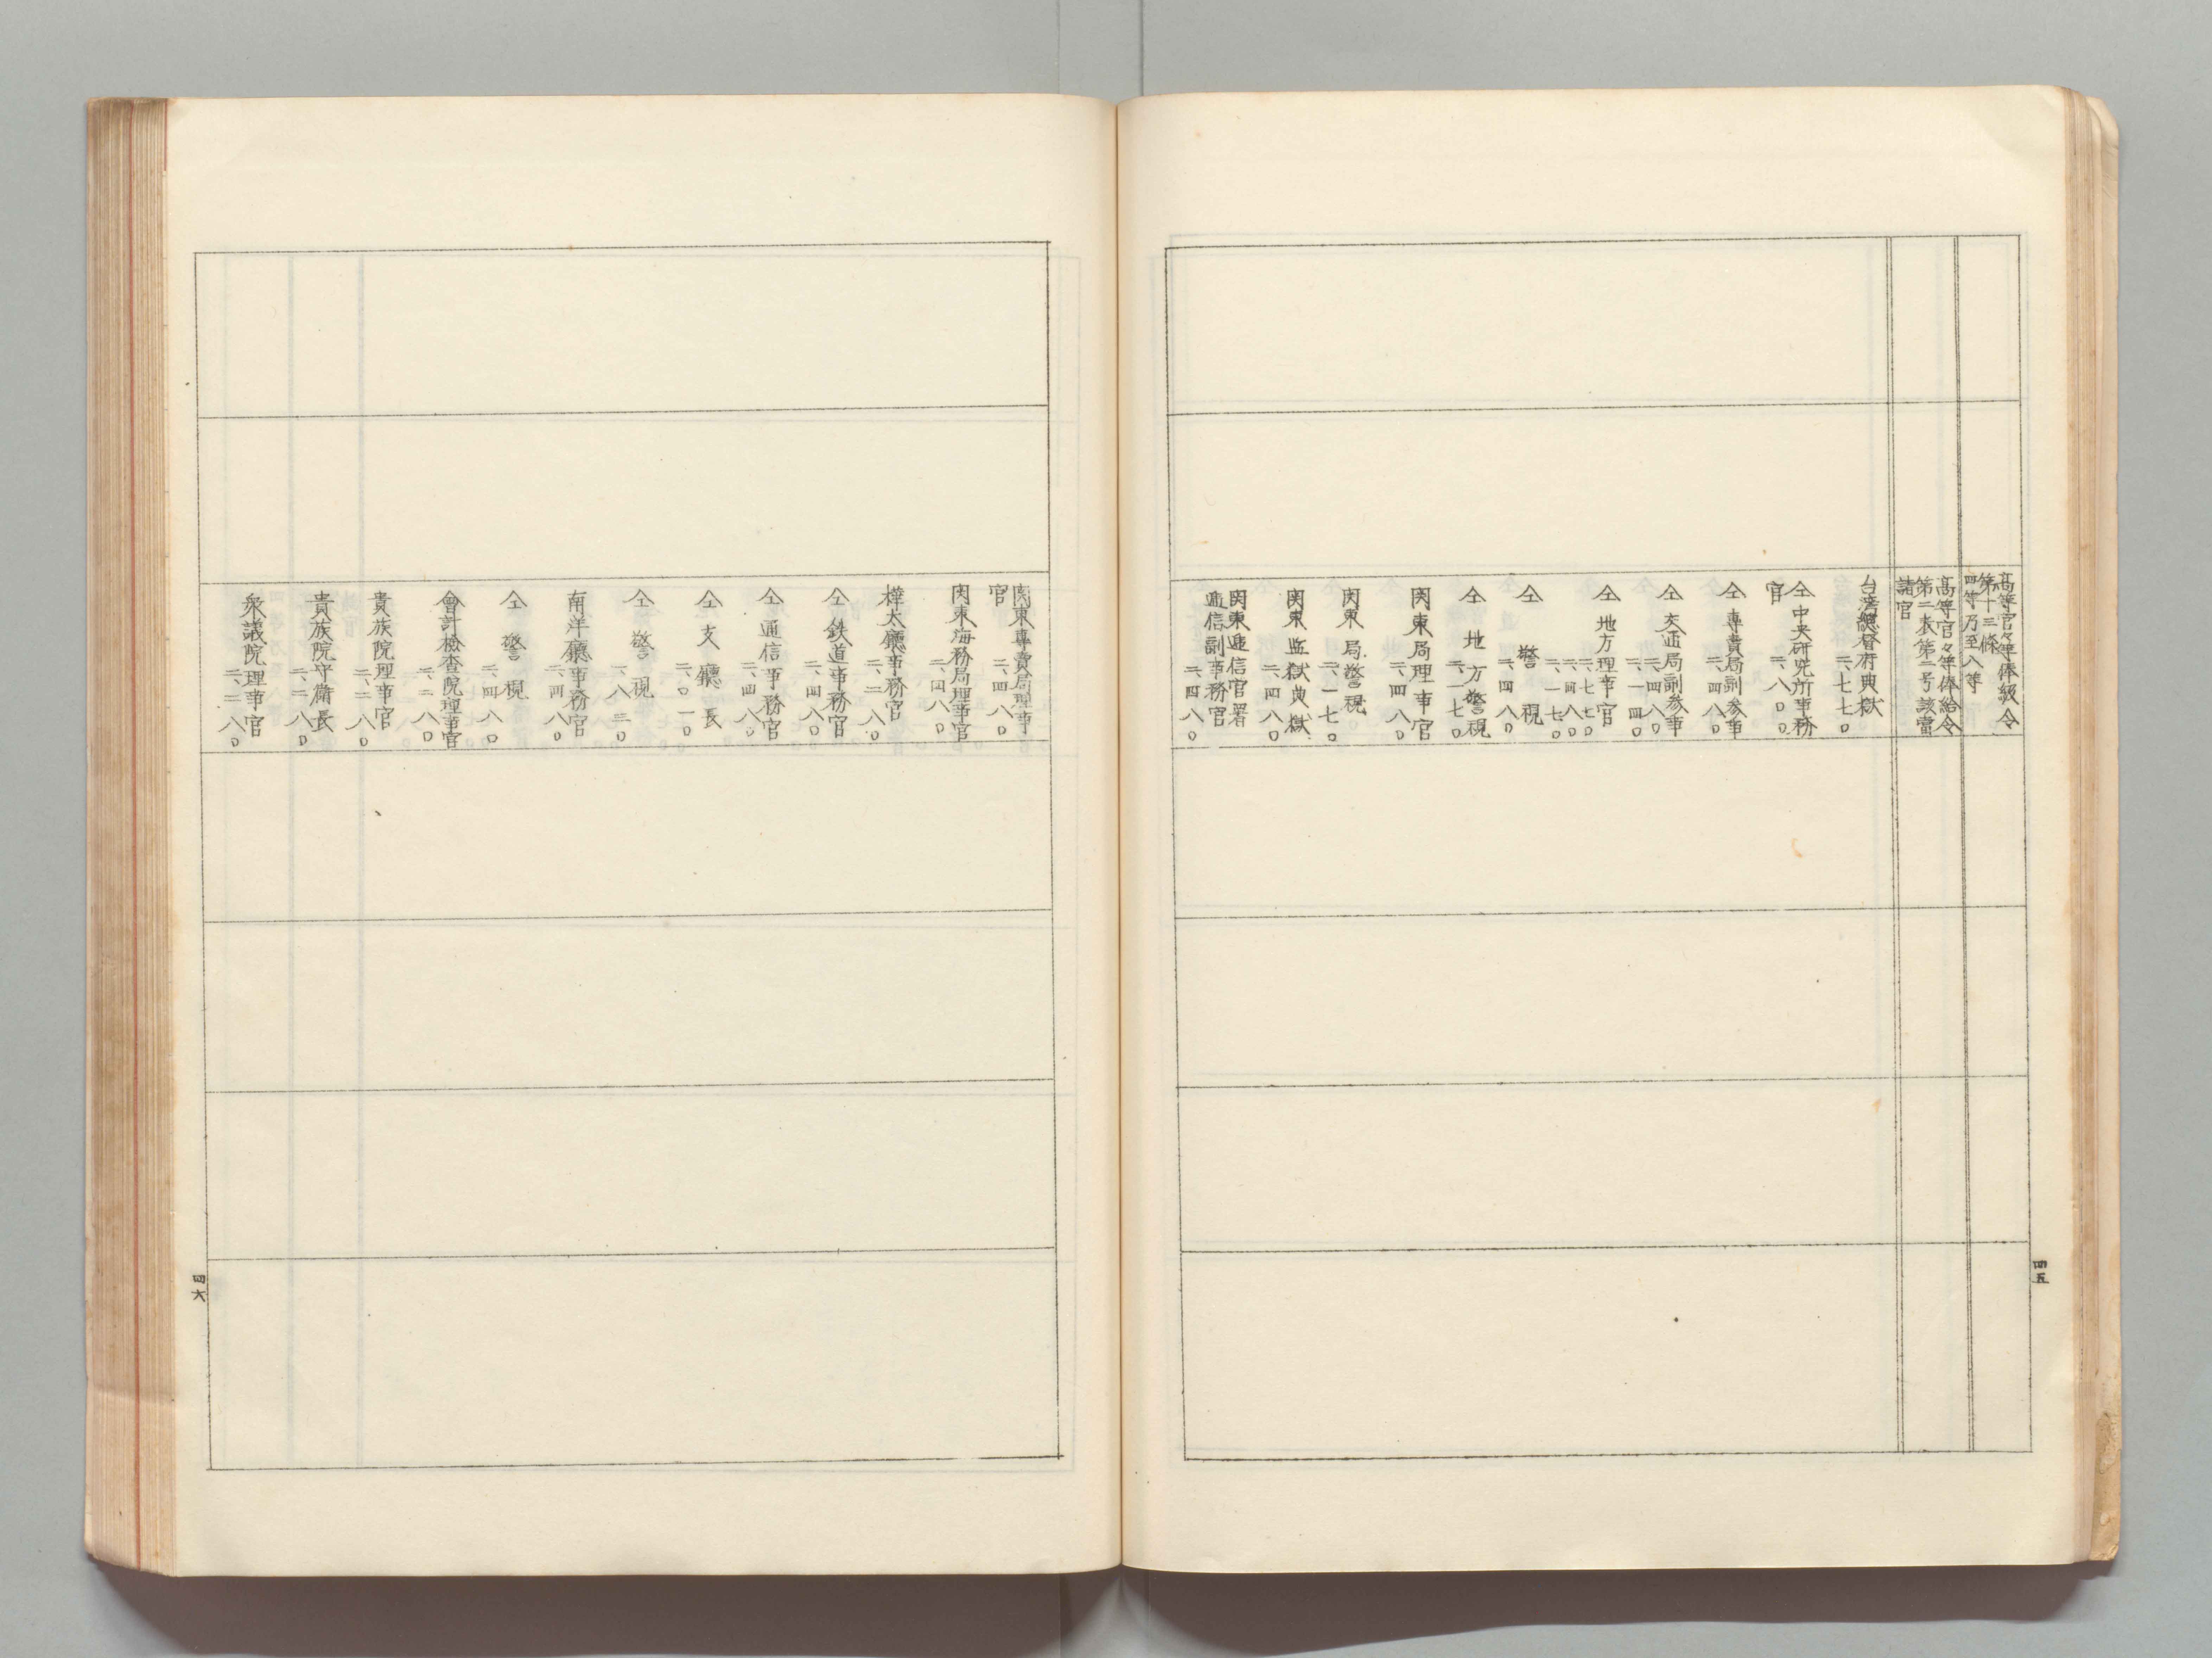 高等官々等俸級令
第十三條
四等乃至八等
高等官々等俸給令
第二表第二号該當
諸官
台湾總督府典獄
二、七七〇
仝中央研究所事務
官
二、八〇〇
仝専賣局副参事
二、四八〇
仝交通局副参事
二、四八〇
二、一四〇
仝地方理事官
二、七七〇
二、四八〇
二、一七〇
仝警視
二、四八〇
仝地方警視
二、一七〇
関東局理事官
二、四八〇
関東局警視
二、一七〇
関東監獄典獄
二、四八〇
関東逓信官署
逓信副事務官
二、四八〇
四五
関東專賣局理事
官
二、四八〇
関東海務局理事官
二、四八〇
樺太廳事務官
二、二八〇
仝鉄道事務官
二、四八〇
仝通信事務官
二、四八〇
仝支廳長
二、〇一〇
仝警視
一、八三〇
南洋廳事務官
二、四八〇
仝警視
二、四八〇
會計檢査院理事官
二、二八〇
貴族院理事官
二、二八〇
貴族院守衛長
二、二八〇
衆議院理事官
二、二八〇
四六